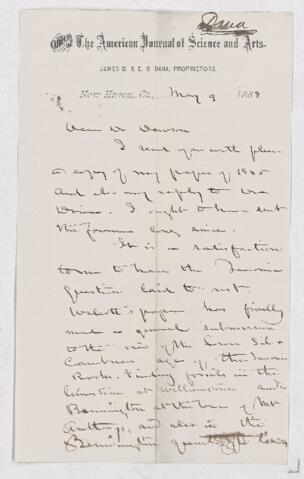 Dana
The American Journal of Science and Arts.
JAMES D. & E. S. DANA, PROPRIETORS.
New Haven, Ct., May 9 1888
Dear Dr Dawson
I send you with pleas.
a copy of my paper of 1885
and also my reply to
I ought to have sent
the former long since.
It is a satisfaction
to me to have the Taconic
question laid to rest
Walcott's paper has finally
made a general submission
to the view of the Lower Sil. &
Cambrian age of the Taconic
Rocks. Finding fossils in the
limestone at Williamstown and in
Bennington at the base of Mt
Anthony, and also in the
Bennington